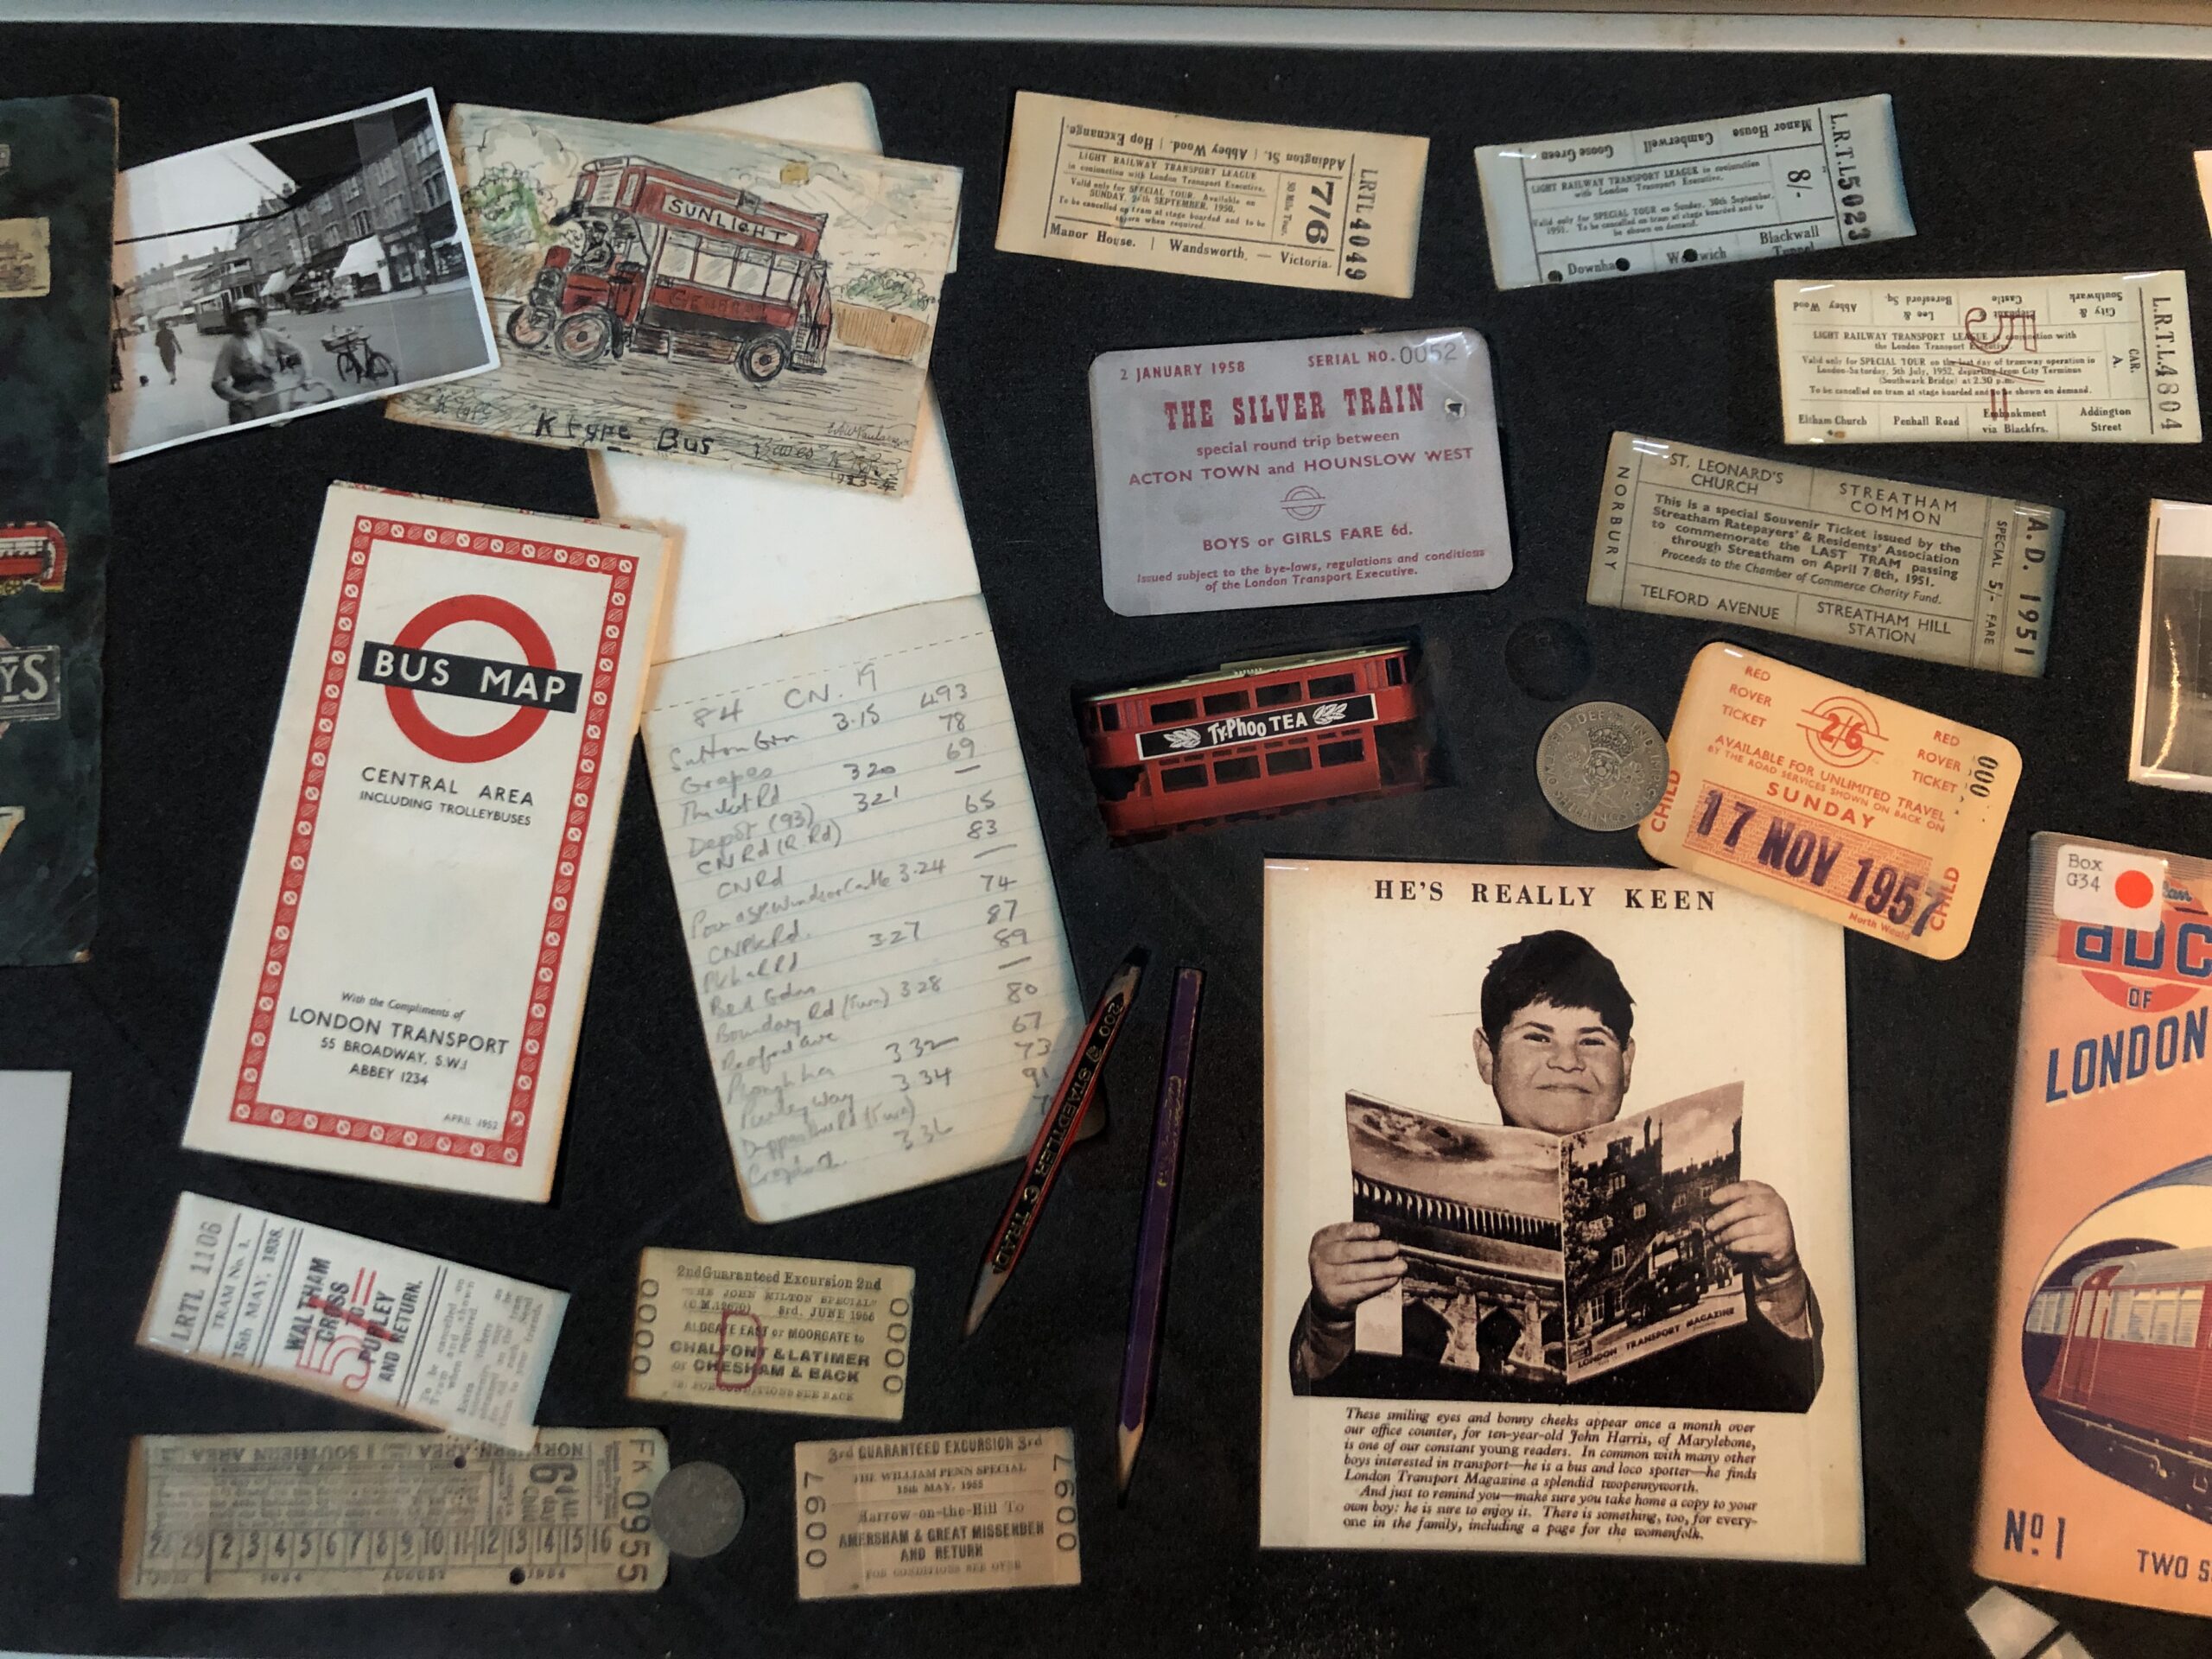 SUNLIGHT
K type Bus
BUS MAP
CENTRAL AREA
INCLUDING TROLLEYBUSES
With the Compliments of
LONDON TRANSPORT
55 BROADWAY, S.W.1
ABBEY 1234
APRIL 1952
84 CN. 19
3.15 493
Grapes 78
320 69
Depot (93) 321 —
CN Rd (R Rd) 65
CN Rd 83
3.24 —
74
327 87
89
Boundary Rd 328 —
80
332 67
Purley Way 334 73
91
336
STAEDTLER
Addington St. | Abbey Wood. | Hop Exchange.
LIGHT RAILWAY TRANSPORT LEAGUE
in conjunction with London Transport Executive.
Valid only for SPECIAL TOUR Available on
SUNDAY, SEPTEMBER, 1950.
To be cancelled on tram at stage boarded and to be
shown when required.
Manor House. | Wandsworth. — Victoria.
7/6
LRTL 4049
Manor House Camberwell Goose Green
LIGHT RAILWAY TRANSPORT LEAGUE in conjunction
with London Transport Executive.
Valid only for SPECIAL TOUR on Sunday, 30th September,
1951. To be cancelled on tram at stage boarded and to
be shown on demand.
Downham Woolwich Blackwall Tunnel
8/-
L.R.T.L. 5023
City & Southwark Elephant Castle Lee & Beresford Sq. Abbey Wood
LIGHT RAILWAY TRANSPORT LEAGUE in conjunction with
the London Transport Executive.
Valid only for SPECIAL TOUR on the last day of tramway operation in
London-Saturday, 5th July, 1952, departing from City Terminus
(Southwark Bridge) at 2.30 p.m.
To be cancelled on tram at stage boarded and to be shown on demand.
Eltham Church Penhall Road Embankment via Blackfrs. Addington Street
CAR. A.
L.R.T.L. 4804
2 JANUARY 1958 SERIAL NO. 0052
THE SILVER TRAIN
special round trip between
ACTON TOWN and HOUNSLOW WEST
BOYS or GIRLS FARE 6d.
Issued subject to the bye-laws, regulations and conditions
of the London Transport Executive.
NORBURY
ST. LEONARD'S CHURCH
STREATHAM COMMON
This is a special Souvenir Ticket issued by the
Streatham Ratepayers' & Residents' Association
to commemorate the LAST TRAM passing
through Streatham on April 7/8th, 1951.
Proceeds to the Chamber of Commerce Charity Fund.
TELFORD AVENUE
STREATHAM HILL STATION
SPECIAL 5/- FARE
A.D. 1951
TY-PHOO TEA
RED ROVER TICKET
2/6
RED ROVER TICKET
000
AVAILABLE FOR UNLIMITED TRAVEL
BY THE ROAD SERVICES SHOWN ON BACK ON
SUNDAY
17 NOV 1957
CHILD
CHILD
North Weald
HE'S REALLY KEEN
LONDON TRANSPORT MAGAZINE
These smiling eyes and bonny cheeks appear once a month over
our office counter, for ten-year-old John Harris, of Marylebone,
is one of our constant young readers. In common with many other
boys interested in transport—he is a bus and loco spotter—he finds
London Transport Magazine a splendid twopennyworth.
And just to remind you—make sure you take home a copy to your
own boy: he is sure to enjoy it. There is something, too, for every-
one in the family, including a page for the womenfolk.
Box
G34
abc
OF
LONDON
No 1
TWO S
YS
LRTL 1106
TRAM No. 1.
15th MAY, 1938.
WALTHAM
CROSS
TO
PURLEY
AND RETURN.
5/=
2nd Guaranteed Excursion 2nd
"THE JOHN MILTON SPECIAL"
3rd. JUNE 1956
ALDGATE EAST or MOORGATE to
CHALFONT & LATIMER
or CHESHAM & BACK
FOR CONDITIONS SEE BACK
0000
0000
D
NORTHERN AREA SOUTHERN AREA
6d
All day
Child
28 29 2 3 4 5 6 7 8 9 10 11 12 13 14 15 16
FK 0955
3rd GUARANTEED EXCURSION 3rd
THE WILLIAM PENN SPECIAL
15th MAY, 1955
Harrow-on-the-Hill To
AMERSHAM & GREAT MISSENDEN
AND RETURN
FOR CONDITIONS SEE OVER
0097
0097